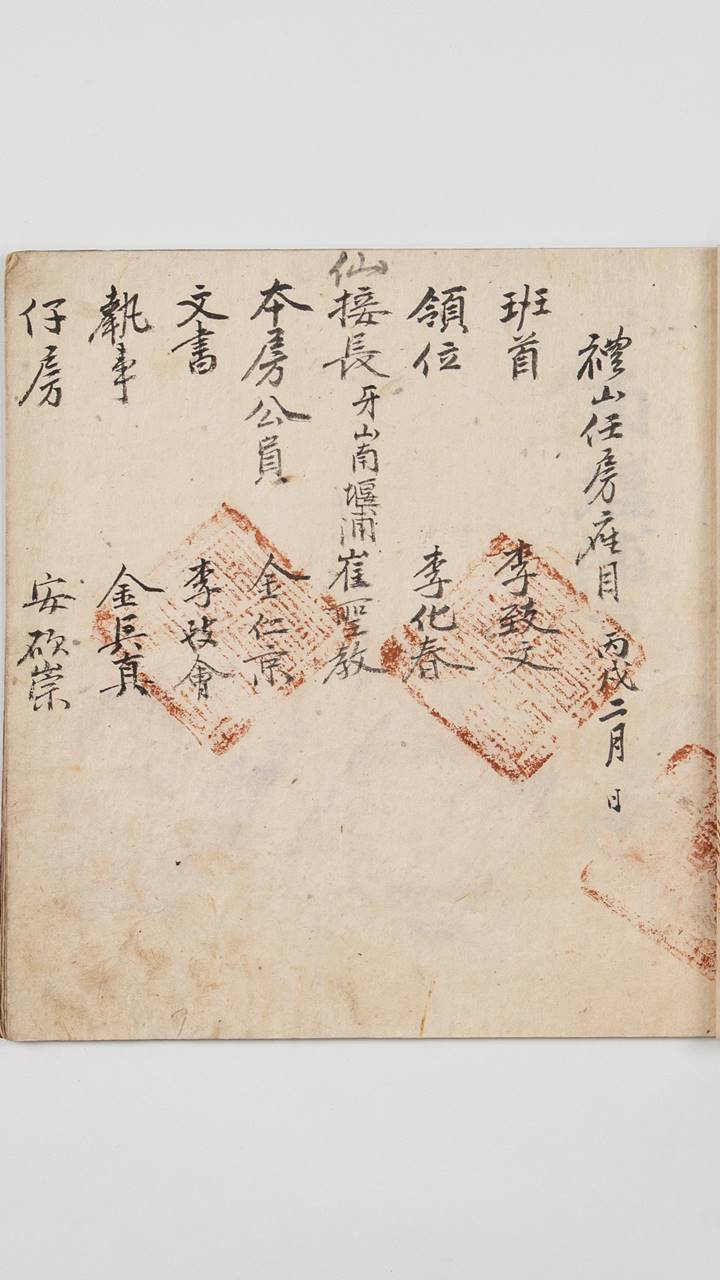 禮山任房座目 丙戌二月 日
班首 李致文
領位 李化春
仙接長 牙山南堰浦崔聖教
本房公員 金仁京
文書 李 會
執事 金長真
仔房 安 崇